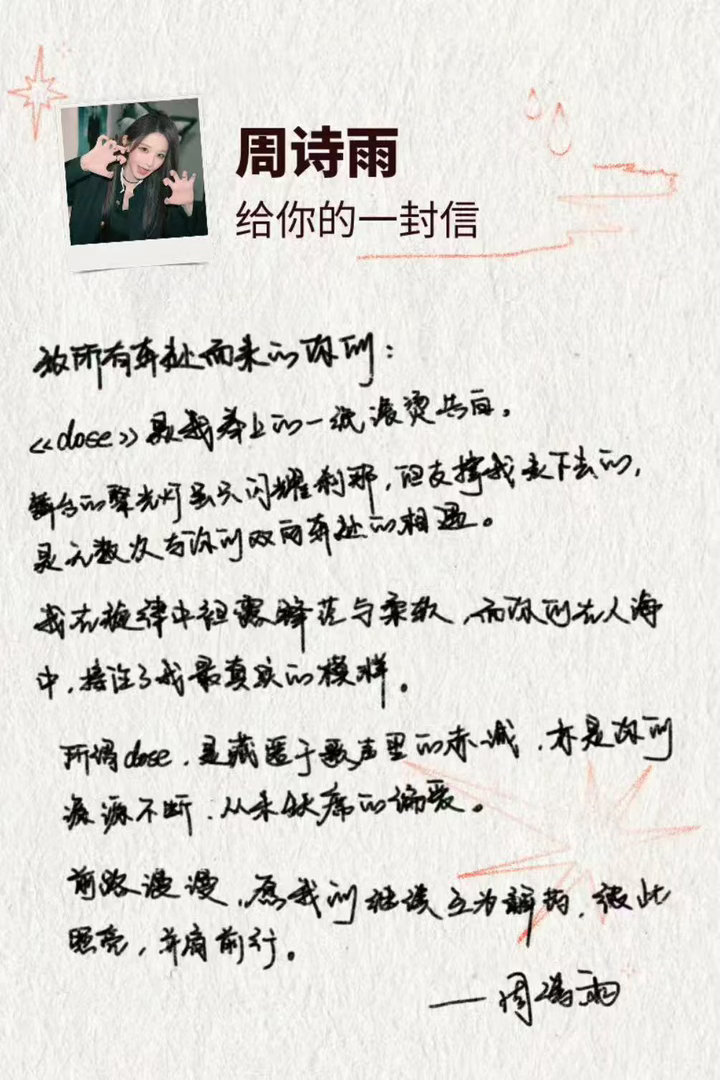 周诗雨
给你的一封信
致所有奔赴而来的你们：
《dose》是我奉上的一纸滚烫告白。
舞台的聚光灯虽只闪耀刹那，但支撑我走下去的，
是无数次与你们双向奔赴的相遇。
我在旋律中袒露锋芒与柔软，而你们在人海
中，接住了我最真实的模样。
所谓dose，是藏匿于歌声里的赤诚，亦是你们
源源不断、从未缺席的偏爱。
前路漫漫，愿我们继续互为解药，彼此
照亮，并肩前行。
——周诗雨